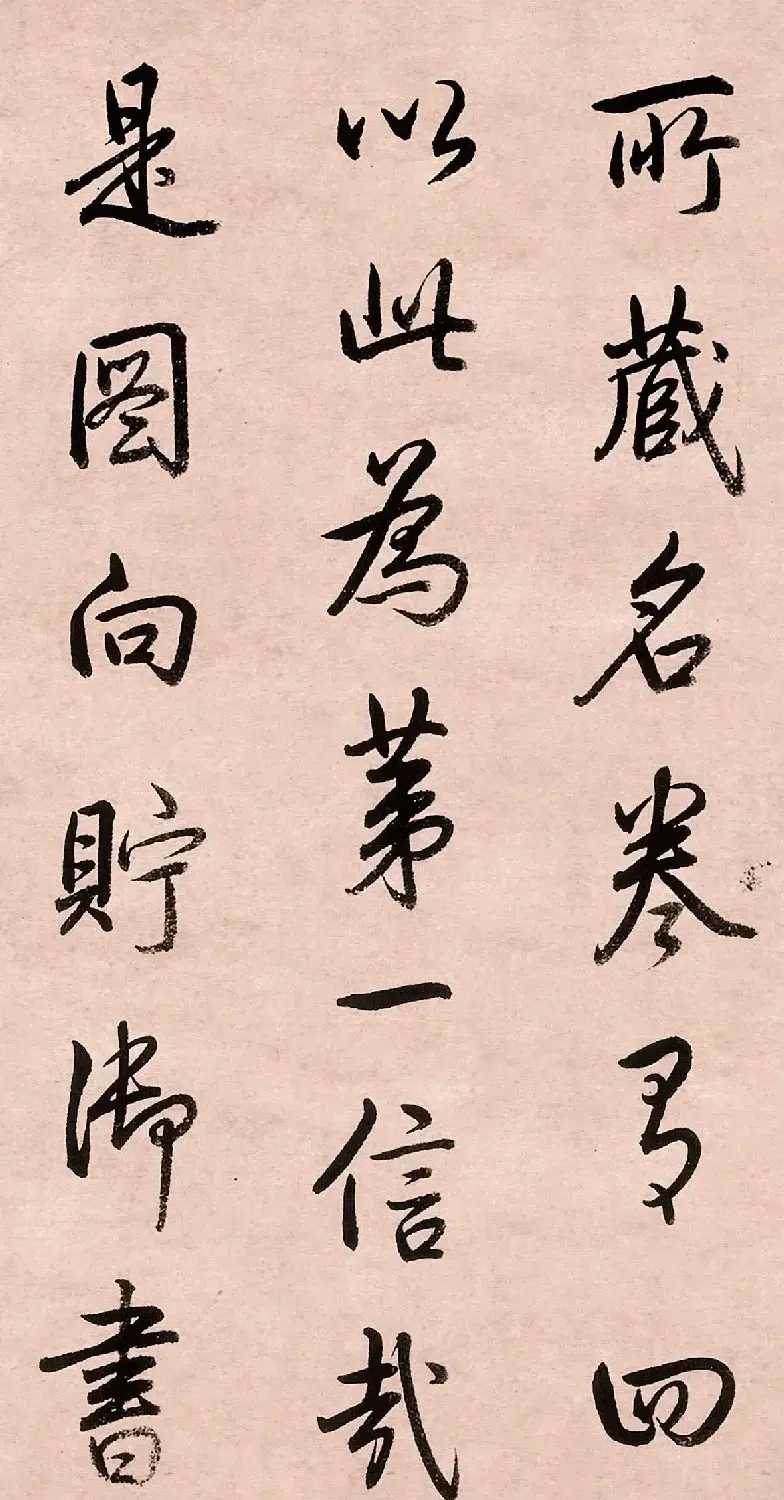 所藏名卷有四
以此為第一信哉
是圖向貯御書